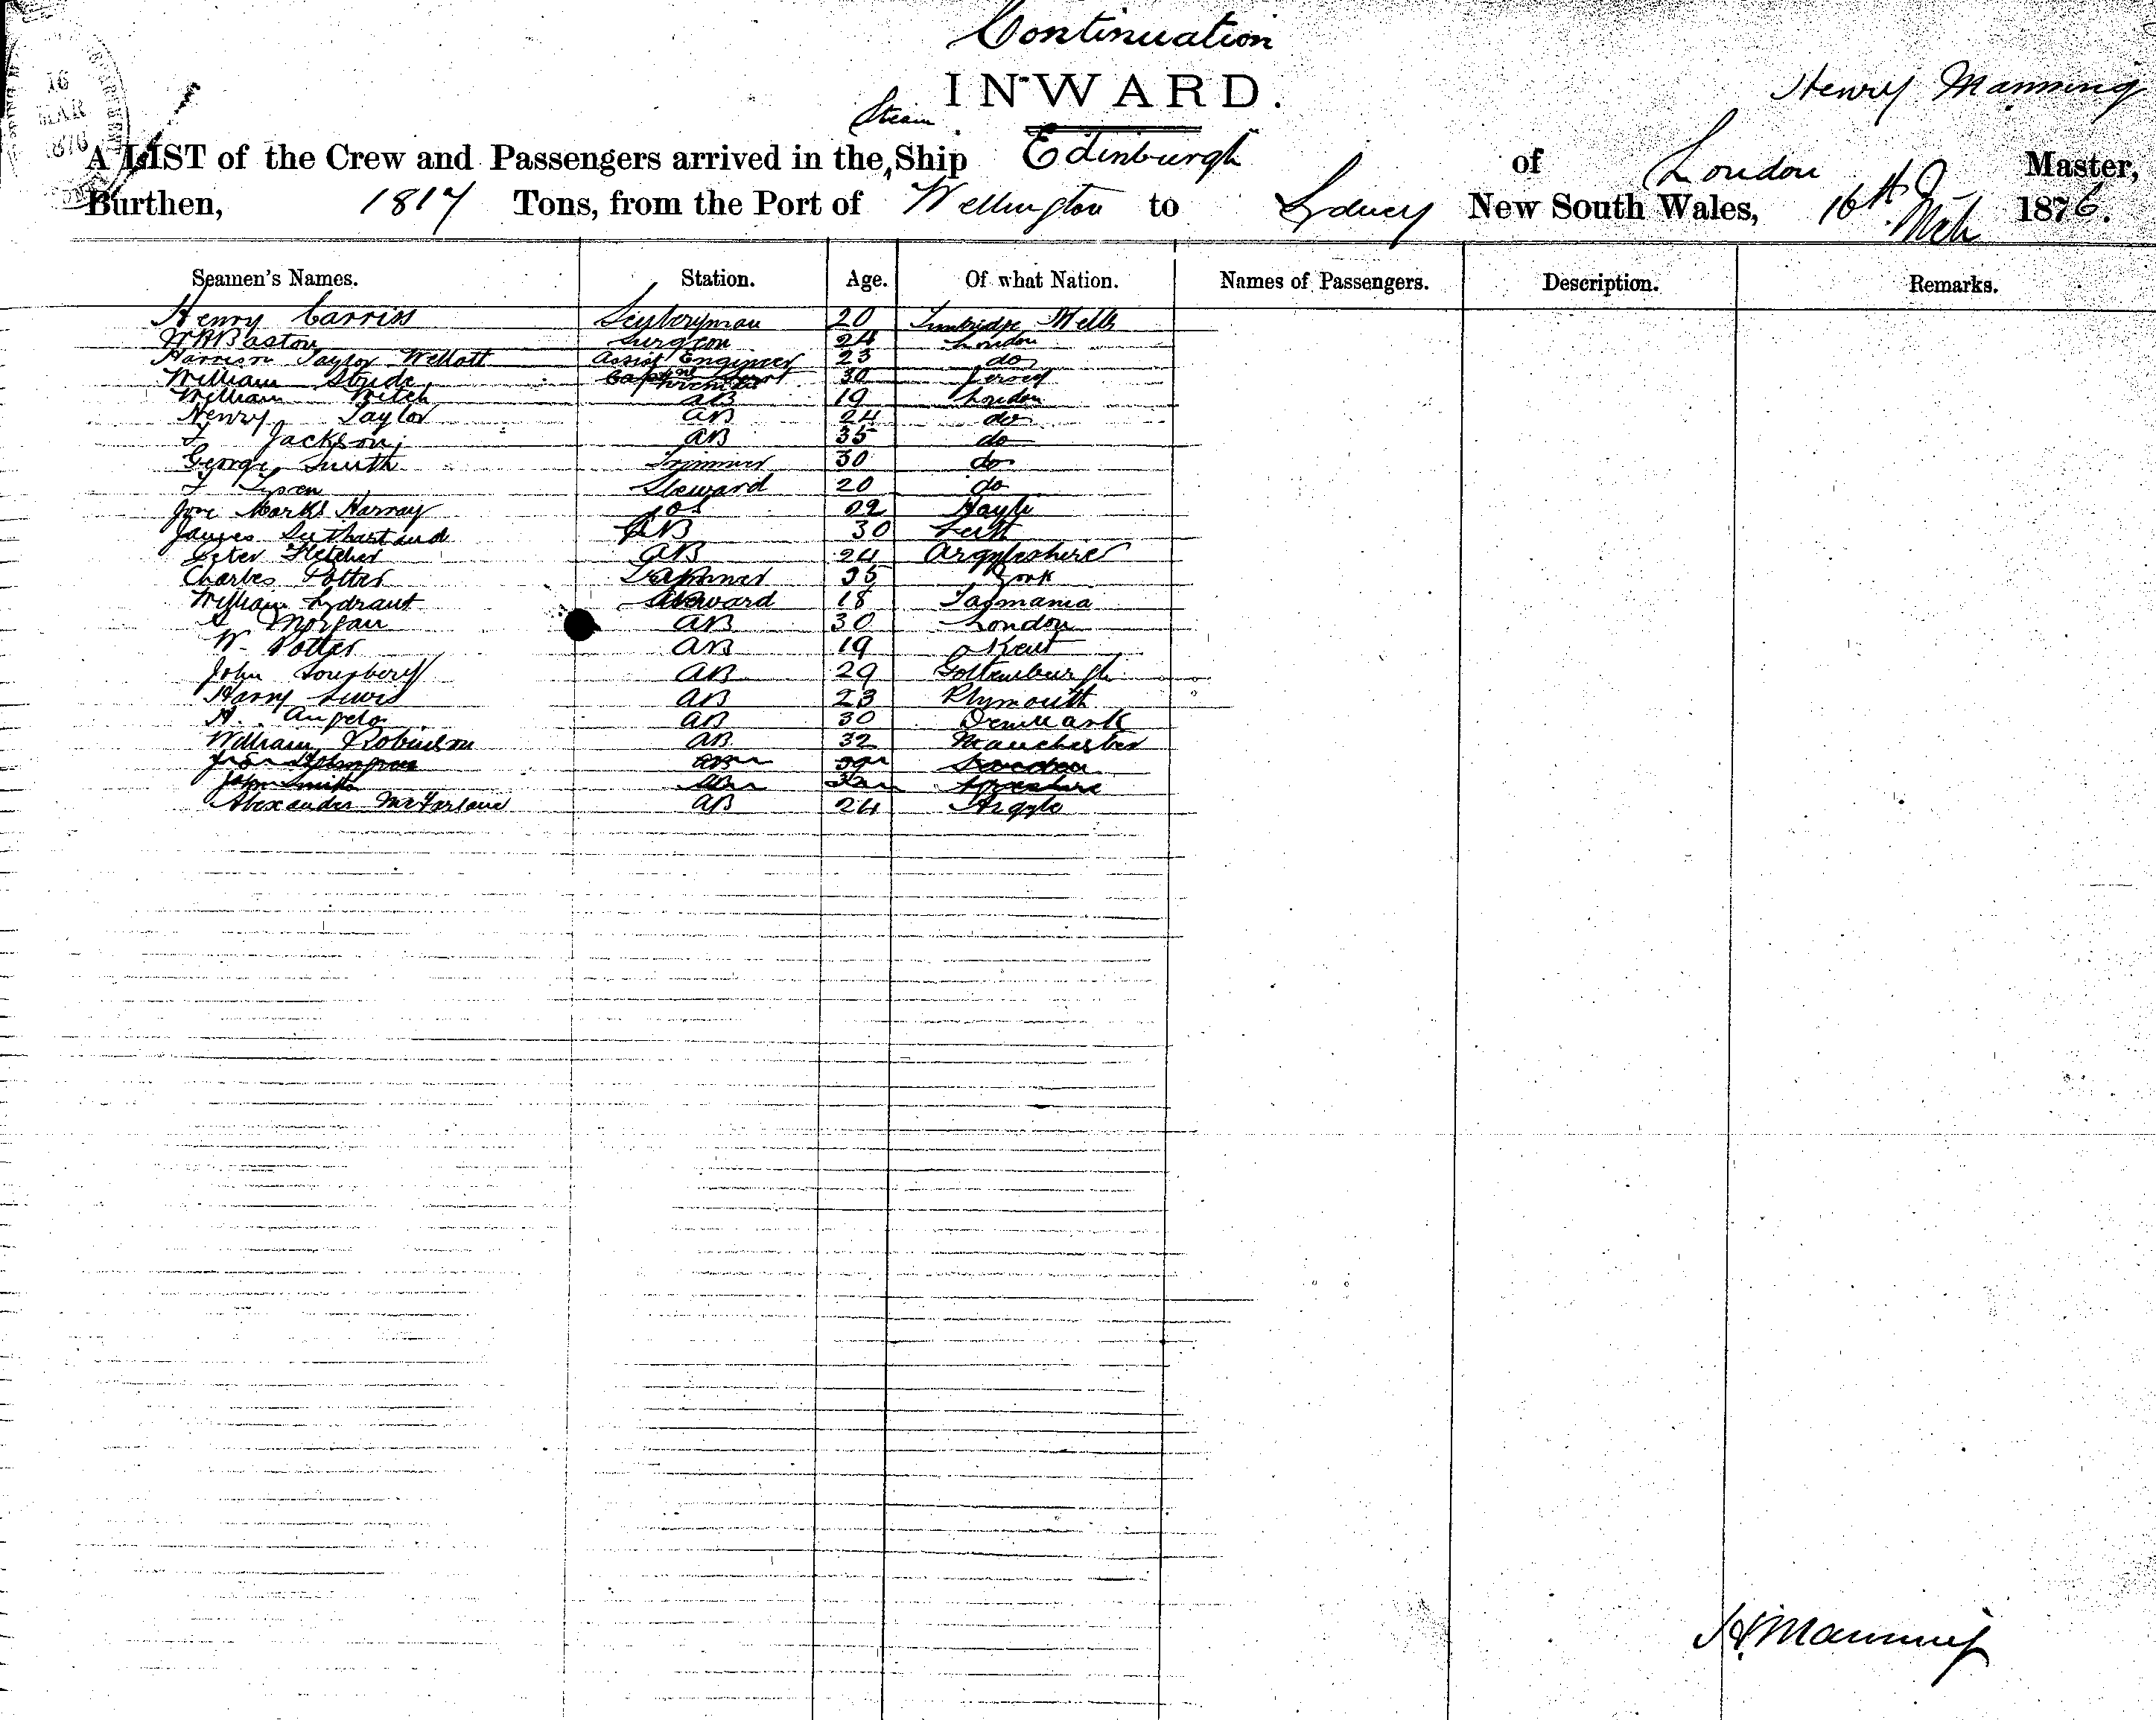 Continuation
INWARD.
Henry Manning
Steam
A LIST of the Crew and Passengers arrived in the Ship Edinburgh of London Master,
Burthen, 1817 Tons, from the Port of Wellington to Sydney New South Wales, 16th Mch 1876.
16
MAR
1876
Seamen's Names. Station. Age. Of what Nation. Names of Passengers. Description. Remarks.
Henry Carriss 20 Tunbridge Wells
W H Baston Surgeon 24 London
Harrison Taylor Assist Engineer 23 do
William Stride 30 Jersey
William AB 19 London
Henry Taylor AB 24 do
Jackson AB 35 do
George Smith Trimmer 30 do
Steward 20 do
Marks Harray Hayle
James Suthartand AB 30 Leith
Peter Fletcher AB 24 Argyleshire
Charles Potter 35
William Steward 18 Tasmania
Morgan AB 30 London
W. Potter AB 19 Kent
John AB 29 Gottenburgh
Harry Lewis AB 23 Plymouth
A. Angelo AB 30 Denmark
William Robinson AB 32 Manchester
AB
John Smith
Alexander McFarlane AB 24 Argyle
H Manning